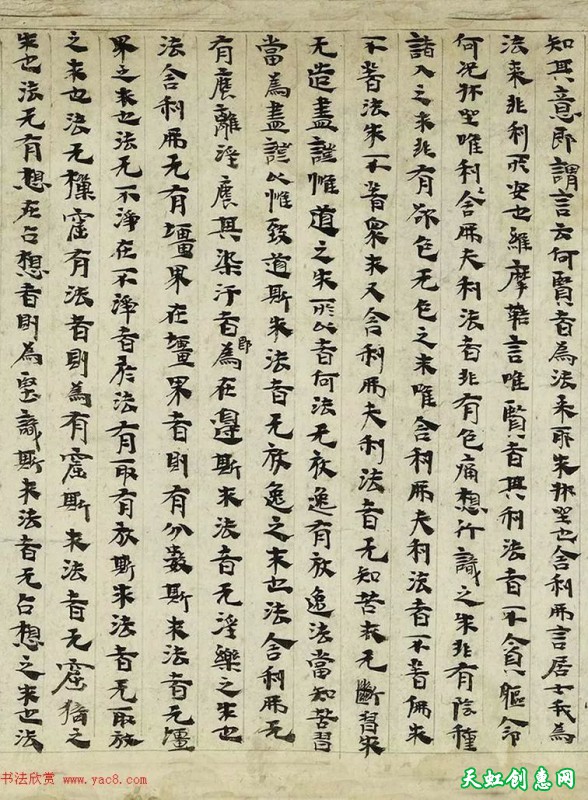 知其意即謂言云何賢者為法来耶求牀坐也舍利弗言居士我為
法来非利所安也維摩詰言唯賢者其利法者不貪軀命
何況牀坐唯利舍弗夫利法者非有色痛想行識之求非有陰種
諸入之求非有欲色无色之求唯舍利弗夫利法者不著佛求
不著法求不著衆求又舍利弗夫利法者无知苦求无斷習求
无造盡證惟道之求所以者何法无放逸有放逸法當知苦習
當為盡證以惟致道斯求法者无放逸之求也法舍利弗无
有塵離婬塵其染汙者即為在邊斯求法者无婬樂之求也
法舍利弗无有壃界在壃界者則有分數斯求法者无壃
界之求也法无不淨在不淨者於法有取有放斯求法者无取放
之求也法无樔窟有法者則為有窟斯求法者无窟猗之
求也法无有想在占想者則為堅識斯求法者无占想之求也法
书法欣赏 www.yac8.com
天虹创惠网